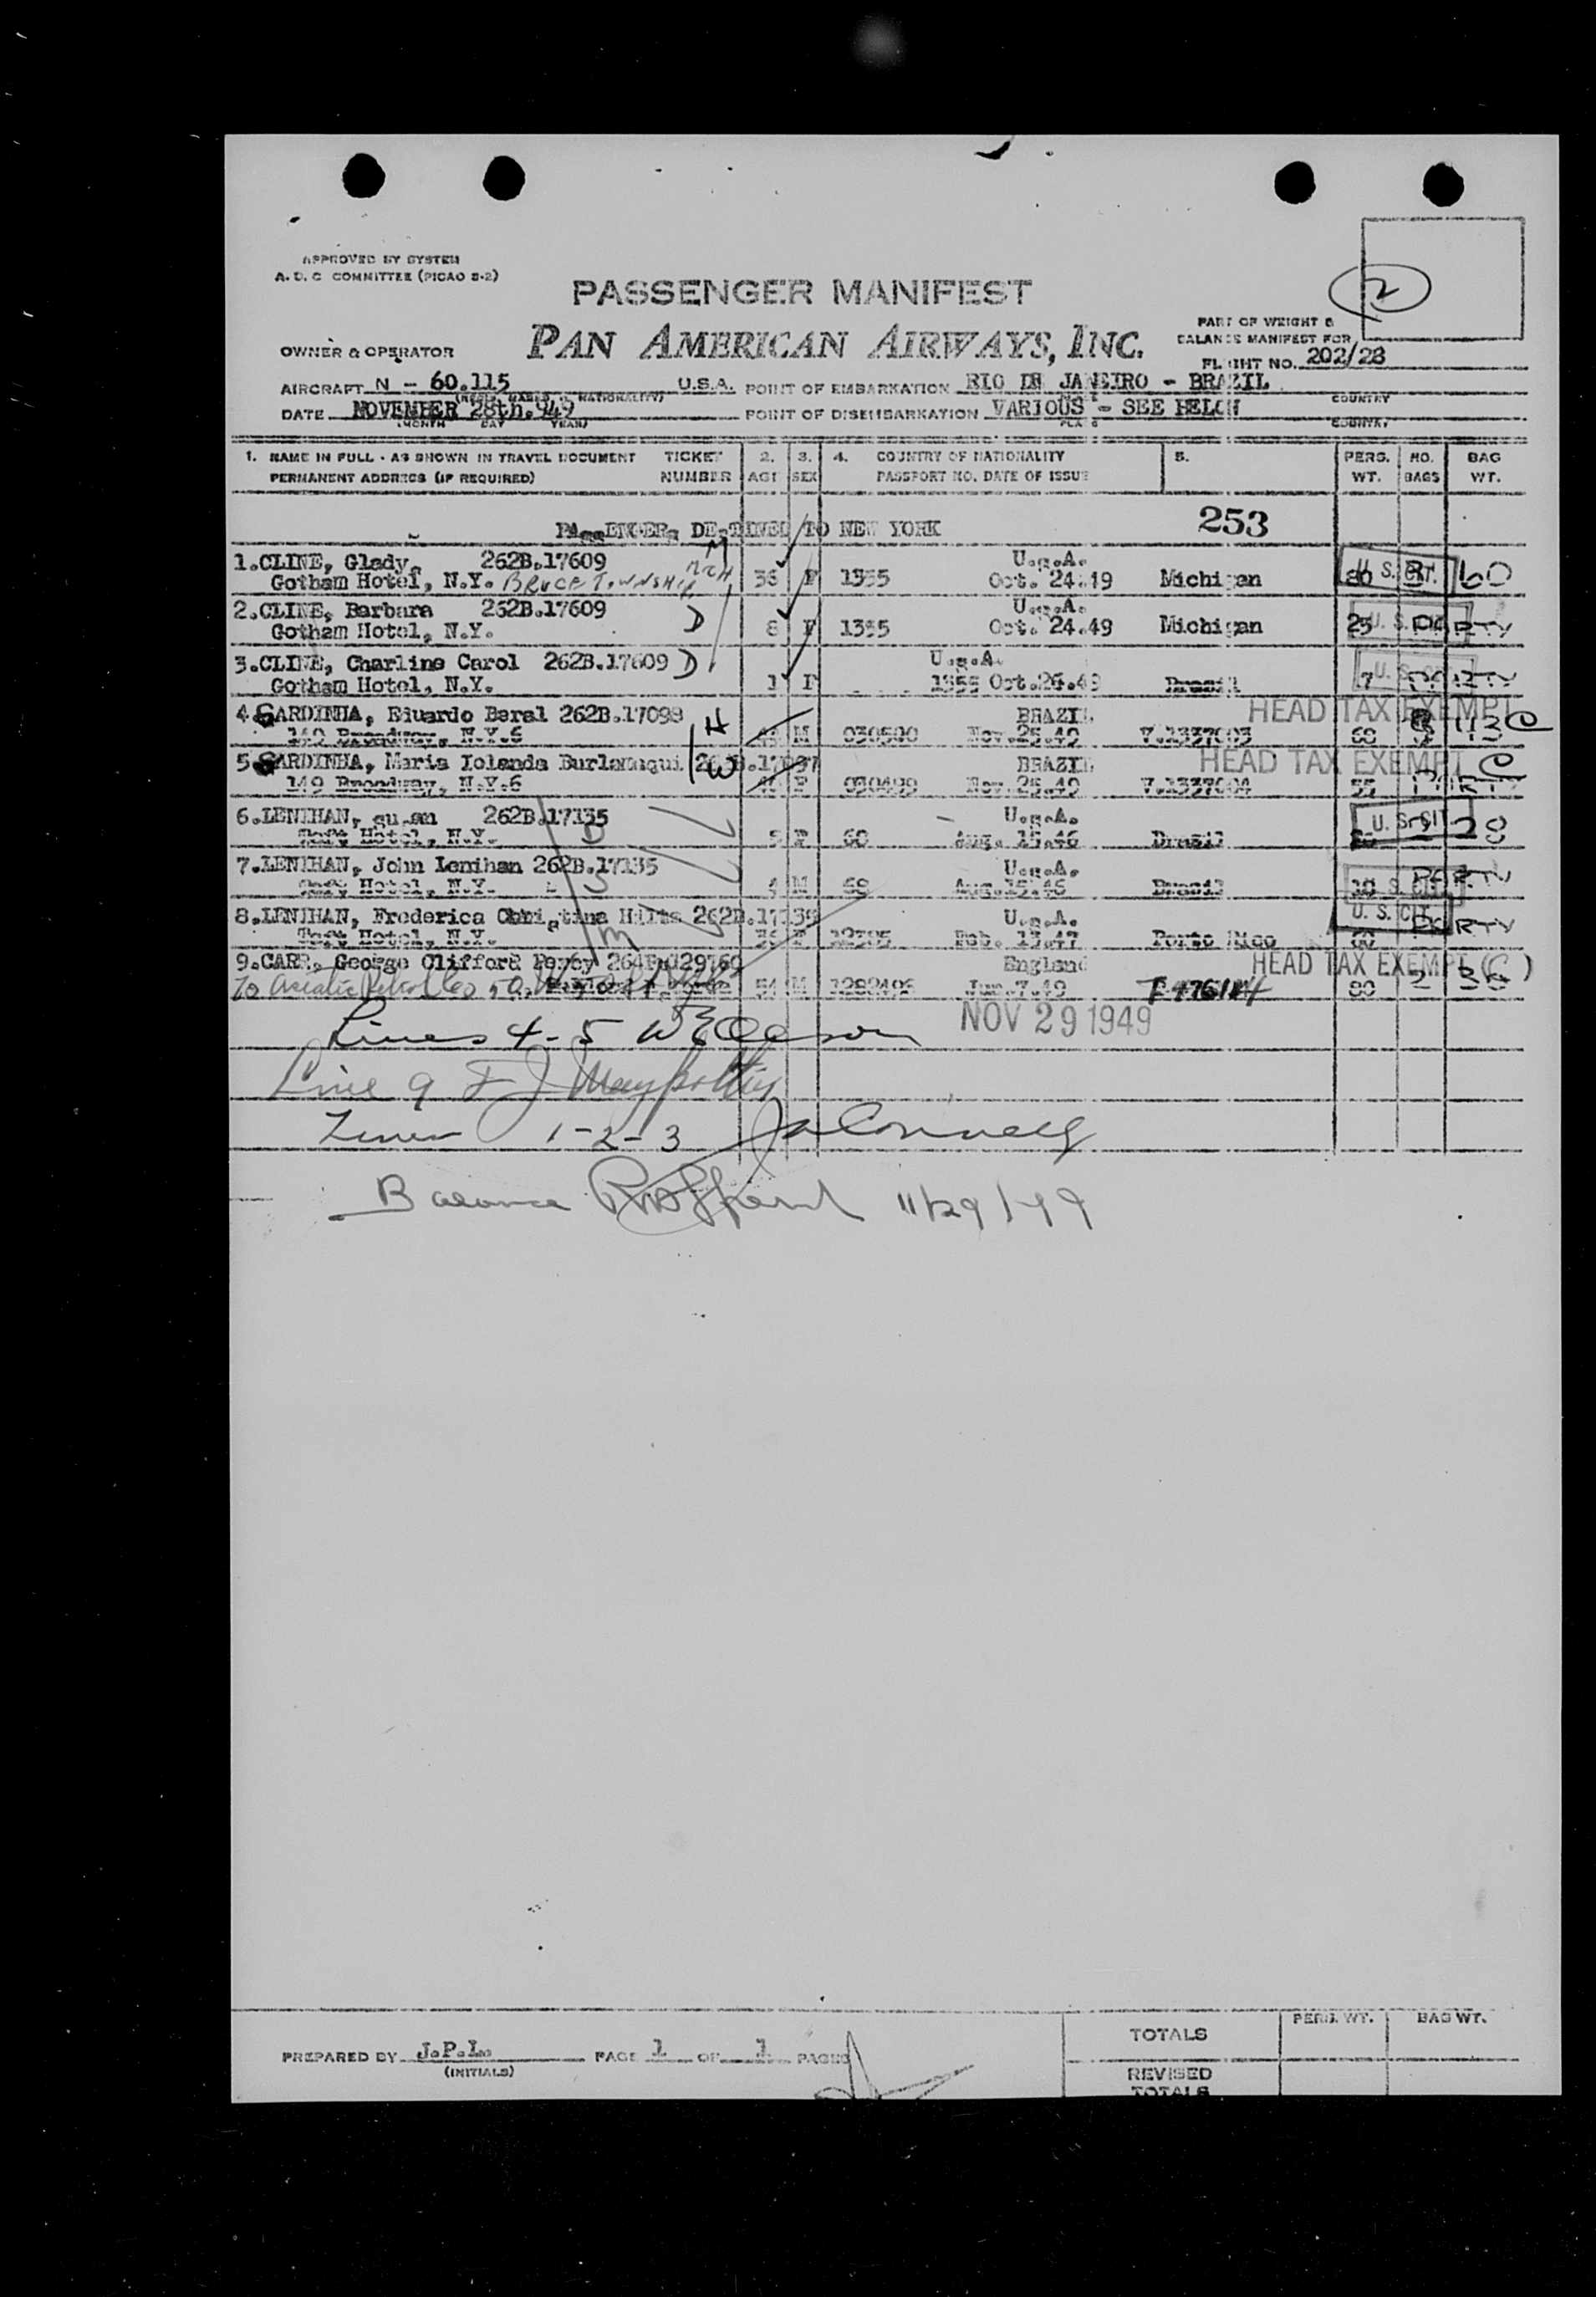 APPROVED BY SYSTEM
A. D. C COMMITTEE (PICAO S-2)
PASSENGER MANIFEST
2
OWNER & OPERATOR
PAN AMERICAN AIRWAYS, INC.
PART OF WEIGHT &
BALANCE MANIFEST FOR
FLIGHT NO. 202/28
AIRCRAFT N - 60.115 U.S.A. POINT OF EMBARKATION RIO DE JANEIRO - BRAZIL
COUNTRY
DATE NOVEMBER 28th.949 POINT OF DISEMBARKATION VARIOUS - SEE BELOW
(MONTH DAY YEAR) COUNTRY
1. NAME IN FULL - AS SHOWN IN TRAVEL DOCUMENT TICKET 2. 3. 4. COUNTRY OF NATIONALITY 5. PERS. NO. BAG
PERMANENT ADDRESS (IF REQUIRED) NUMBER AGE SEX PASSPORT NO. DATE OF ISSUE WT. BAGS WT.
PASSENGERS DESTINED TO NEW YORK 253
1.CLINE, Gladys 262B.17609 U.S.A. U. S. CIT.
Gotham Hotel, N.Y. BRUCE TOWNSHIP MICH 36 F 1355 Oct. 24.49 Michigan 60
2.CLINE, Barbara 262B.17609 D U.S.A. U. S. CIT.
Gotham Hotel, N.Y. 8 F 1355 Oct. 24.49 Michigan 25 PARTY
3.CLINE, Charline Carol 262B.17609 D U.S.A. U. S. CIT.
Gotham Hotel, N.Y. 1 F 1355 Oct.24.49 Brazil 7 PARTY
4.SARDINHA, Eduardo Beral 262B.17098 H BRAZIL HEAD TAX EXEMPT
149 Broadway, N.Y.6 M 030500 Nov.25.49 V.1337003 60 113 C
5.SARDINHA, Maria Iolanda Burlamaqui 262B.17097 W BRAZIL HEAD TAX EXEMPT C
149 Broadway, N.Y.6 F 030499 Nov.25.49 V.1337004 55 PARTY
6.LENIHAN, Susan 262B.17135 U.S.A. U. S. CIT.
Taft Hotel, N.Y. D 5 F 68 Aug. 15.46 Brazil 28
7.LENIHAN, John Lenihan 262B.17135 U.S.A. PARTY
Taft Hotel, N.Y. S 4 M 68 Aug.15.46 Brazil U. S. CIT.
8.LENIHAN, Frederica Christina Hilts 262B.17135 U.S.A. U. S. CIT. PARTY
Taft Hotel, N.Y. M 36 F 12395 Feb. 13.47 Porto Rico 60
9.CARR, George Clifford Percy England HEAD TAX EXEMPT (C)
To Asiatic 54 M 1282496 Jun.7.49 80 2
Lines 4-5
NOV 29 1949
Line 9
Lines 1-2-3
Balance 11/29/49
PREPARED BY J.P.L. PAGE 1 OF 1 PAGES
(INITIALS)
TOTALS PERS. WT. BAG WT.
REVISED
TOTALS